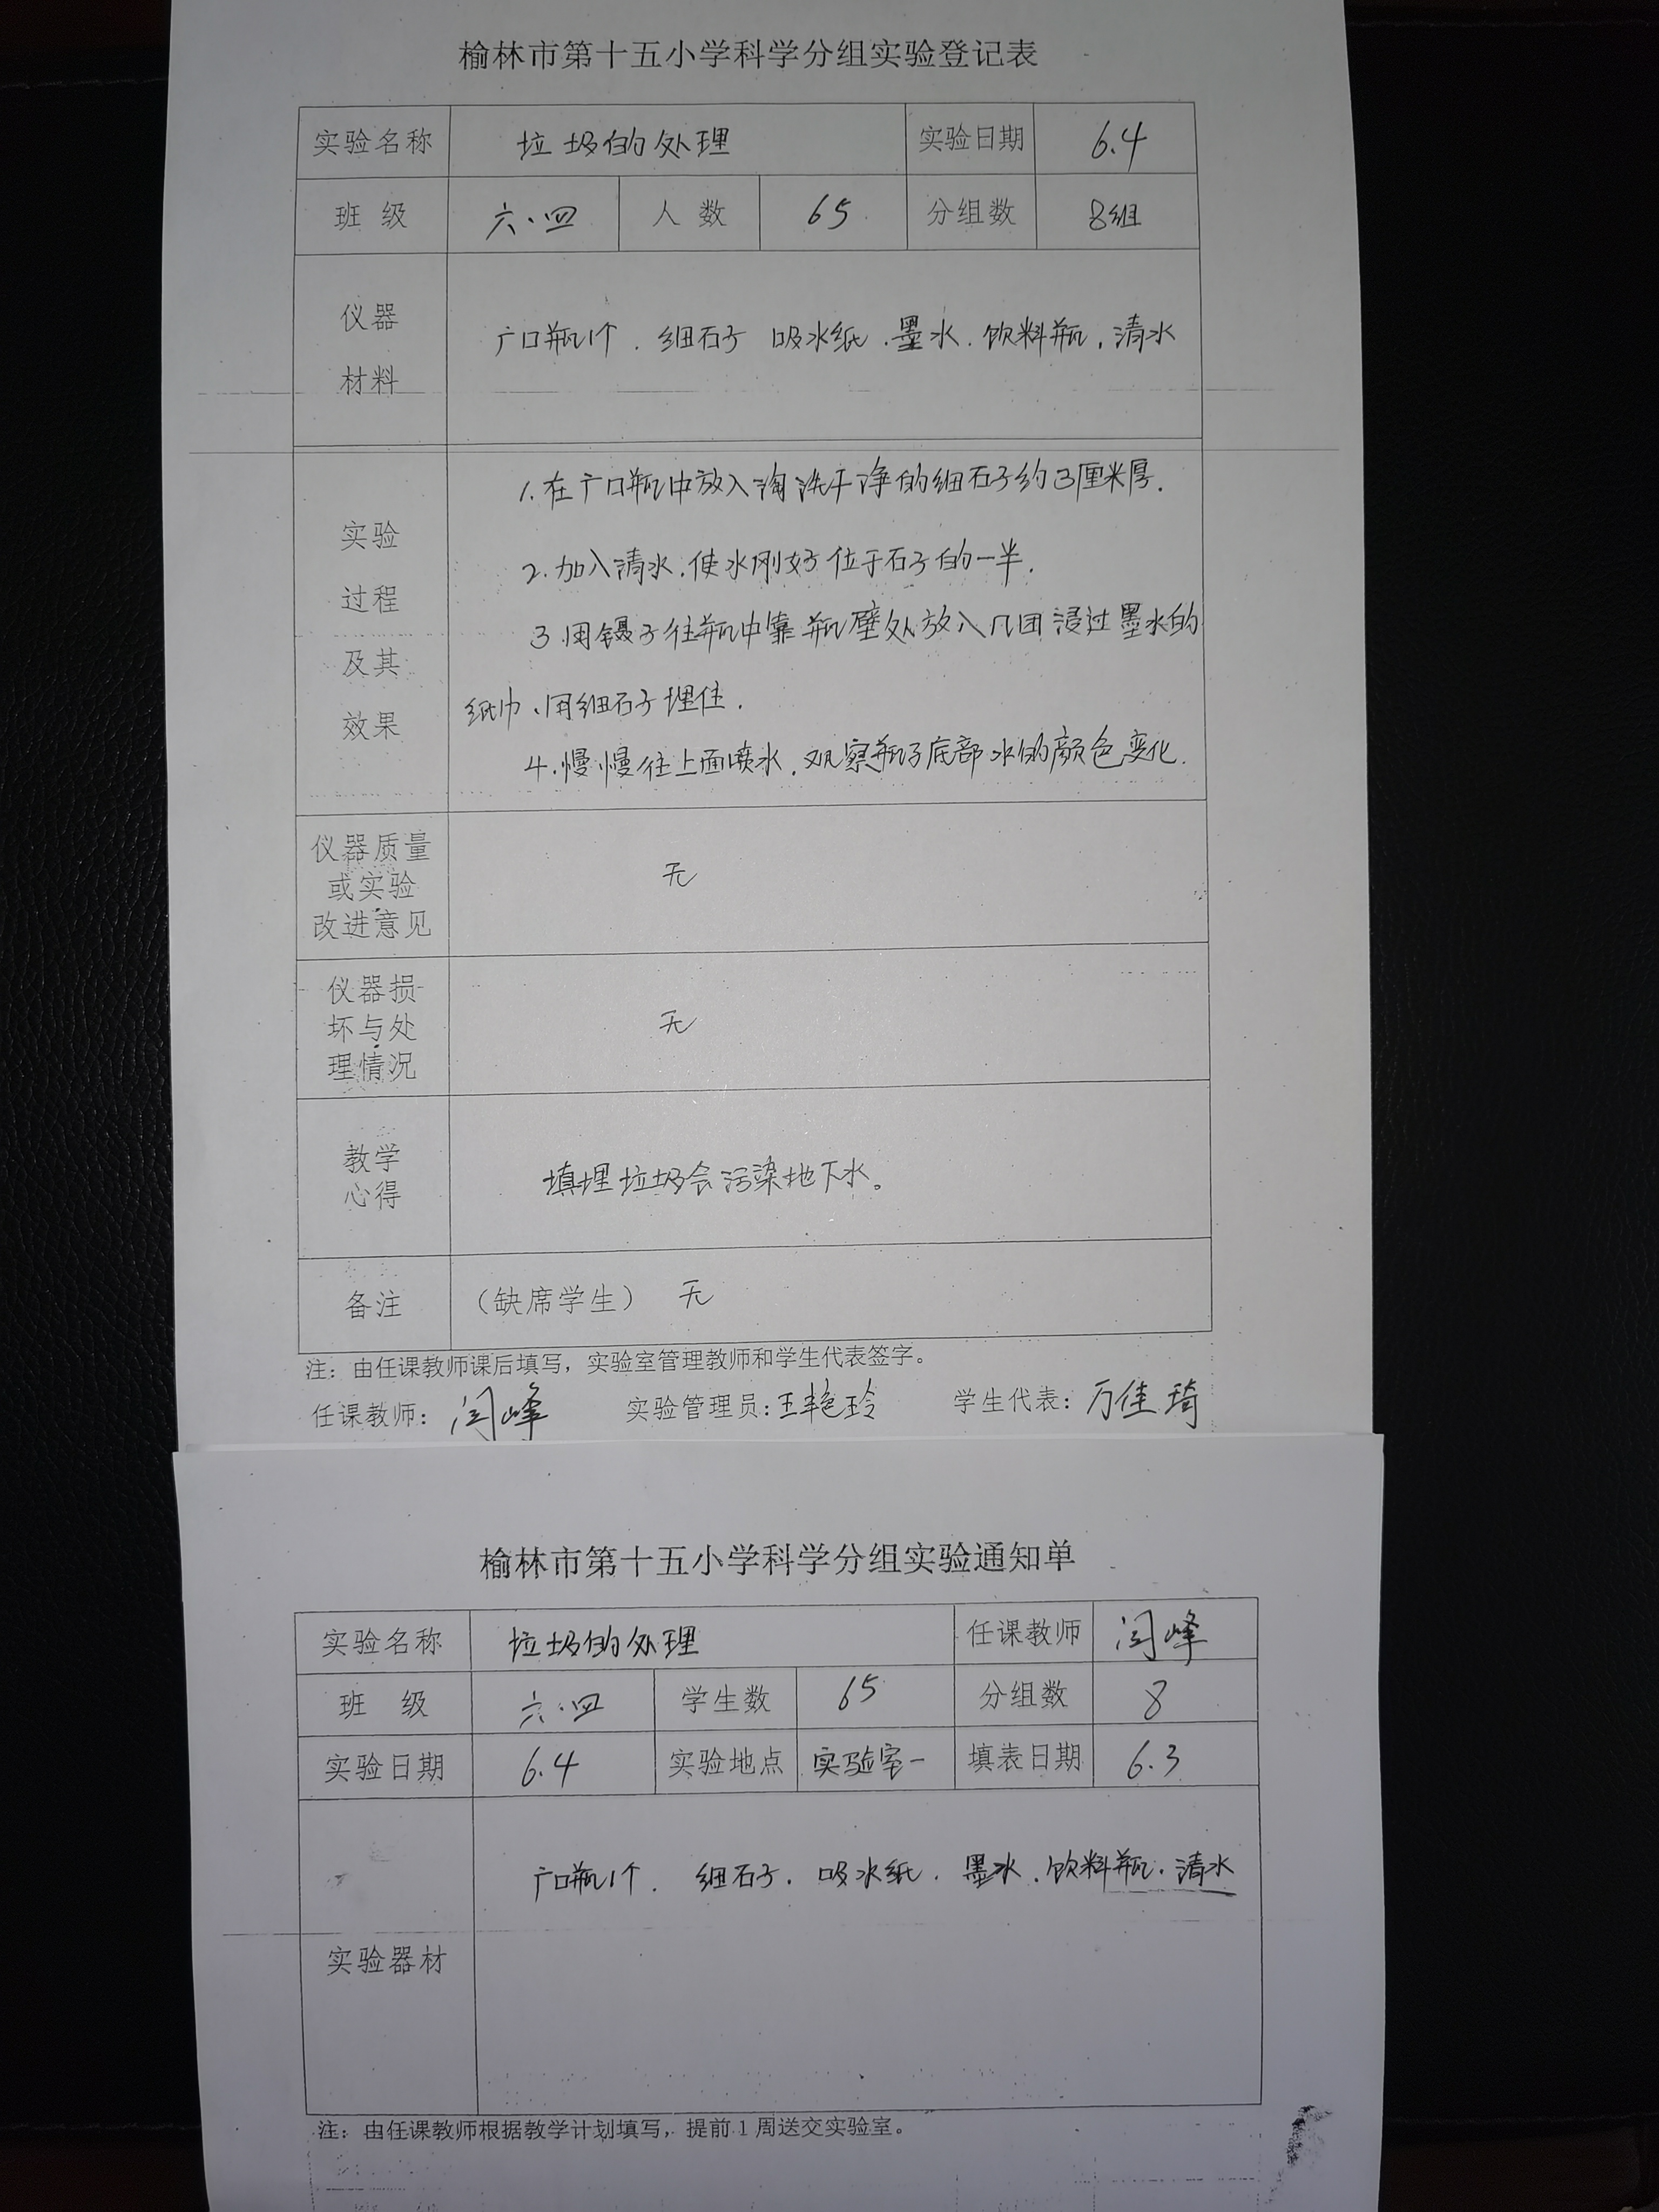 榆林市第十五小学科学分组实验登记表
实验名称 垃圾的处理 实验日期 6.4
班 级 六.四 人 数 65 分组数 8组
仪器
材料
广口瓶1个.细石子 吸水纸.墨水.饮料瓶.清水
实验
过程
及其
效果
1.在广口瓶中放入淘洗干净的细石子约3厘米厚.
2.加入清水.使水刚好位于石子的一半.
3.用镊子往瓶中靠瓶壁处放入几团浸过墨水的
纸巾、用细石子埋住.
4.慢慢往上面喷水.观察瓶子底部水的颜色变化.
仪器质量
或实验
改进意见
无
仪器损
坏与处
理情况
无
教学
心得
填埋垃圾会污染地下水。
备注 (缺席学生) 无
注：由任课教师课后填写，实验室管理教师和学生代表签字。
任课教师：闫峰 实验管理员：王艳玲 学生代表：万佳琦
榆林市第十五小学科学分组实验通知单
实验名称 垃圾的处理 任课教师 闫峰
班 级 六.四 学生数 65 分组数 8
实验日期 6.4 实验地点 实验室一 填表日期 6.3
广口瓶1个.细石子.吸水纸.墨水.饮料瓶.清水
实验器材
注：由任课教师根据教学计划填写，提前1周送交实验室。